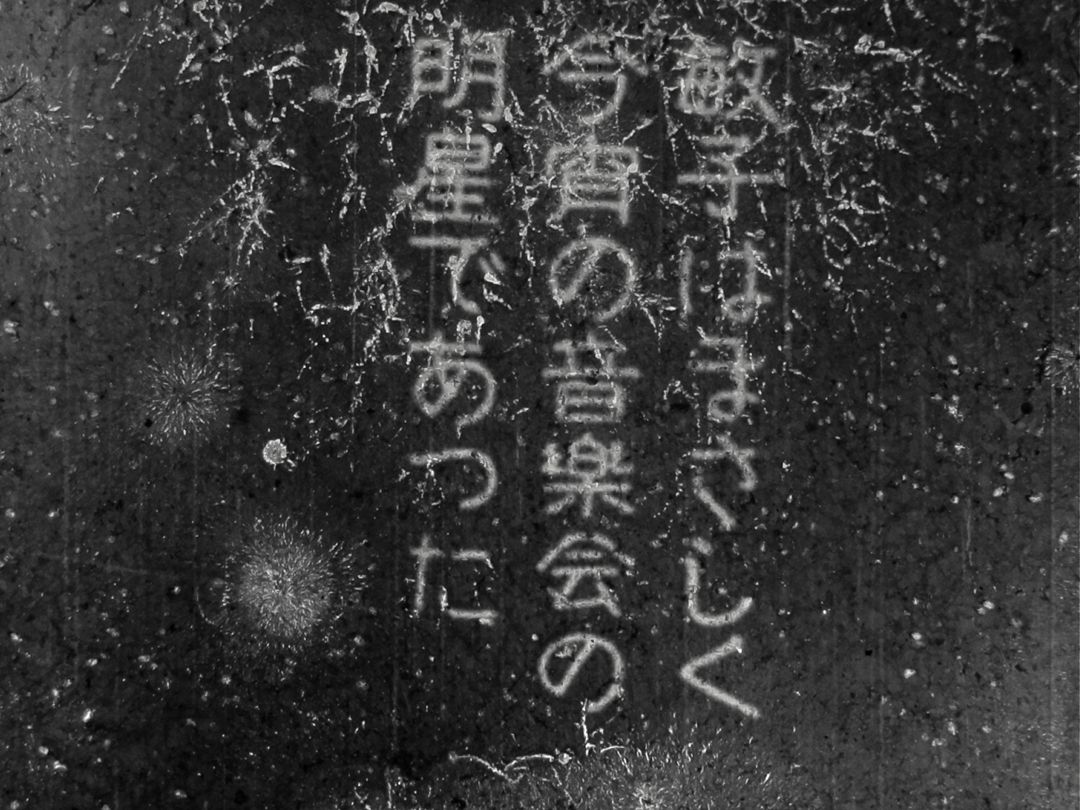 敏子はまさしく
今宵の音楽会の
明星であつた